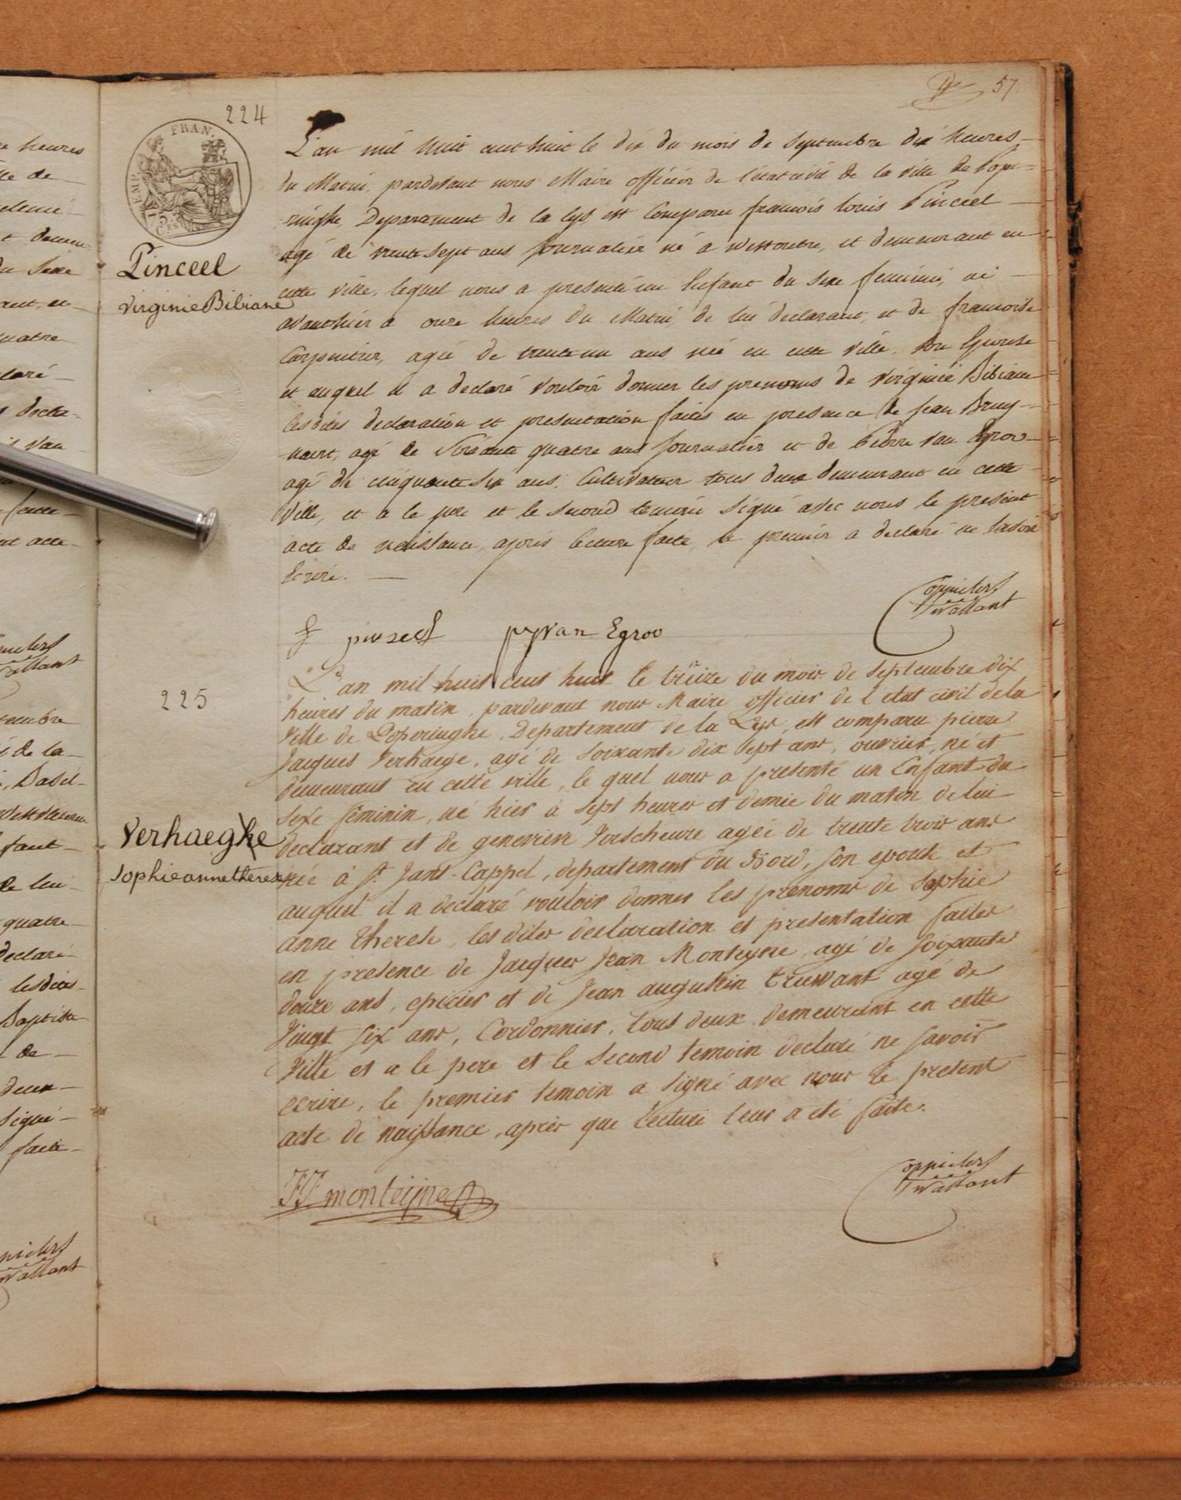 57
224
FRAN.
EMP.
Pinceel
Virginie Bibiane
L'an mil huit cent huit le dix du mois de septembre dix heures
du Matin, pardevant nous Maire officier de l'état civil de la ville de Pope-
ringhe, Departement de la Lys est Comparu francois louis Pinceel
agé de trente sept ans journalier né a Westoutre, et demeurant en
cette ville, lequel nous a presenté un Enfant du sexe feminin, né
avanthier a onze heures du Matin de lui declarant, et de francoise
Carpentier, agée de trente un ans née en cette ville, son Epouse
et auquel il a declaré vouloir donner les prenoms de Virginie Bibiane
lesdites declaration et presentation faites en presence de Jean Bruy-
naert, agé de soixante quatre ans journalier et de Pierre Van Egroo
agé de cinquante six ans, Cultivateur tous deux demeurant en cette
ville, et a le pere et le second temoin signé avec nous le present
acte de naissance, apres lecture faite, le premier a declaré ne savoir
Ecrire.
f pinseel pjvan Egroo
225
Verhaeghe
sophie anne therese
L'an mil huit cens huit le treize du mois de septembre dix
heures du matin, pardevant nous Maire officier de l'etat civil de la
ville de Poperinghe, Departement de la Lys, est comparu pierre
Jacques Verhaege, agé de soixante dix sept ans, ouvrier, né et
demeurant en cette ville, le quel nous a presenté un Enfant du
sexe féminin, né hier à sept heures et demie du matin de lui
declarant et de genevieve Verscheure agée de trente trois ans
née à St. Jans-Cappel, departement du Nord, son epouse et
auquel il a declaré vouloir donner les prenoms de Sophie
anne therese, les dites declaration et presentation faites
en presence de Jacques Jean Monteyne, agé de soixante
douze ans, epicier et de Jean augustin truwant agé de
vingt six ans, Cordonnier, tous deux demeurant en cette
ville et a le pere et le second temoin declaré ne savoir
ecrire, le premier temoin a signé avec nous le present
acte de naissance, après que lecture leur a été faite.
JJ monteijne